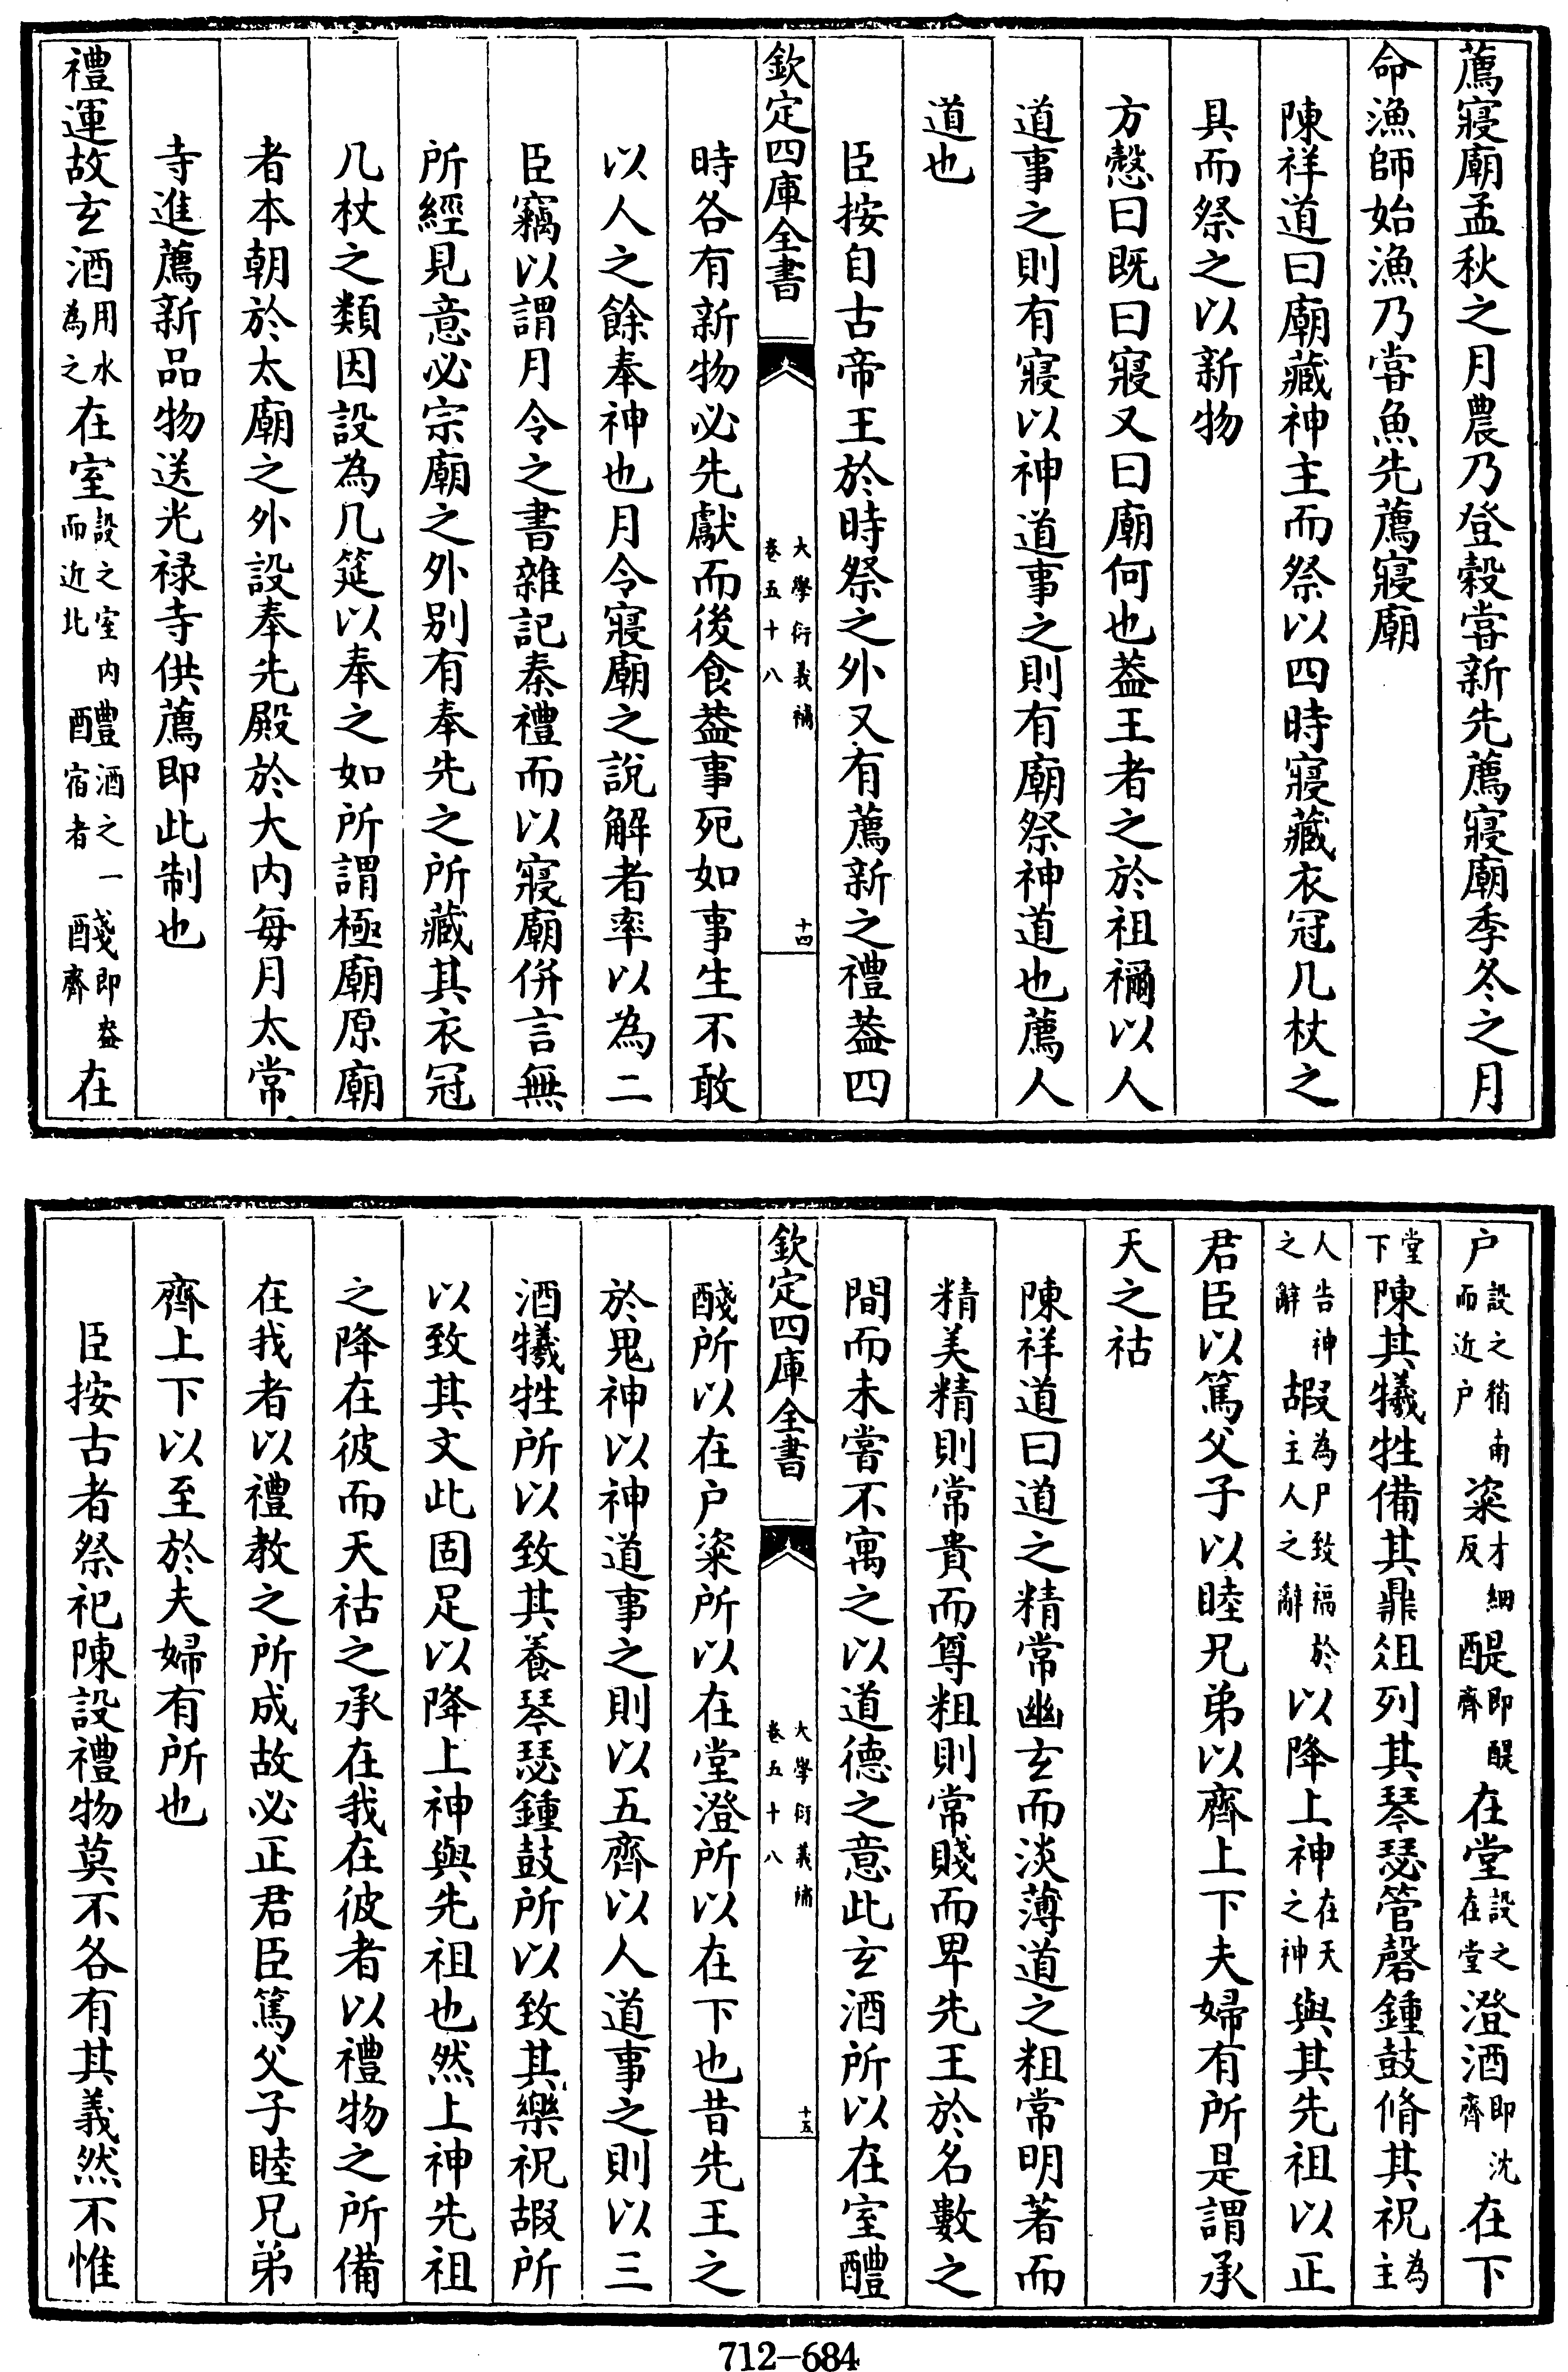 薦寢廟孟秋之月農乃登穀嘗新先薦寢廟季冬之月
命漁師始漁乃嘗魚先薦寢廟
陳祥道曰廟藏神主而祭以四時寢藏衣冠几杖之
具而祭之以新物
方慤曰既曰寢又曰廟何也葢王者之於祖禰以人
道事之則有寢以神道事之則有廟祭神道也薦人
道也
臣按自古帝王於時祭之外又有薦新之禮葢四
欽定四庫全書 大學衍義補 卷五十八 十四
時各有新物必先獻而後食葢事死如事生不敢
以人之餘奉神也月令寢廟之說解者率以為二
臣竊以謂月令之書雜記秦禮而以寢廟併言無
所經見意必宗廟之外別有奉先之所藏其衣冠
几杖之類因設為几筵以奉之如所謂極廟原廟
者本朝於太廟之外設奉先殿於大內每月太常
寺進薦新品物送光禄寺供薦即此制也
禮運故玄酒用水為之在室設之室內而近北醴酒之一宿者醆即盎齊在
户設之稍南而近户粢才細反醍即醍齊在堂設之在堂澄酒即沈齊在下
堂下陳其犧牲備其鼎俎列其琴瑟管磬鍾鼓脩其祝為主
人告神之辭嘏為尸致福於主人之辭以降上神在天之神與其先祖以正
君臣以篤父子以睦兄弟以齊上下夫婦有所是謂承
天之祜
陳祥道曰道之精常幽玄而淡薄道之粗常明著而
精美精則常貴而尊粗則常賤而卑先王於名數之
間而未嘗不寓之以道德之意此玄酒所以在室醴
欽定四庫全書 大學衍義補 卷五十八 十五
醆所以在户粢所以在堂澄所以在下也昔先王之
於鬼神以神道事之則以五齊以人道事之則以三
酒犧牲所以致其養琴瑟鍾鼓所以致其樂祝嘏所
以致其文此固足以降上神與先祖也然上神先祖
之降在彼而天祜之承在我在彼者以禮物之所備
在我者以禮教之所成故必正君臣篤父子睦兄弟
齊上下以至於夫婦有所也
臣按古者祭祀陳設禮物莫不各有其義然不惟
712-684